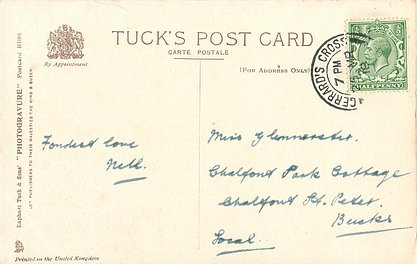 TUCK'S POST CARD
CARTE POSTALE
By Appointment
(FOR ADDRESS ONLY)
GERRARD'S CROSS
7 PM
HALFPENNY
Raphael Tuck & Sons' "PHOTOGRAVURE" Postcard
ART PUBLISHERS TO THEIR MAJESTIES THE KING & QUEEN.
Fondest love
Nell.
Miss Glennerster.
Chalfont Park Cottage
Chalfont St. Peter.
Bucks
Local.
Printed in the United Kingdom